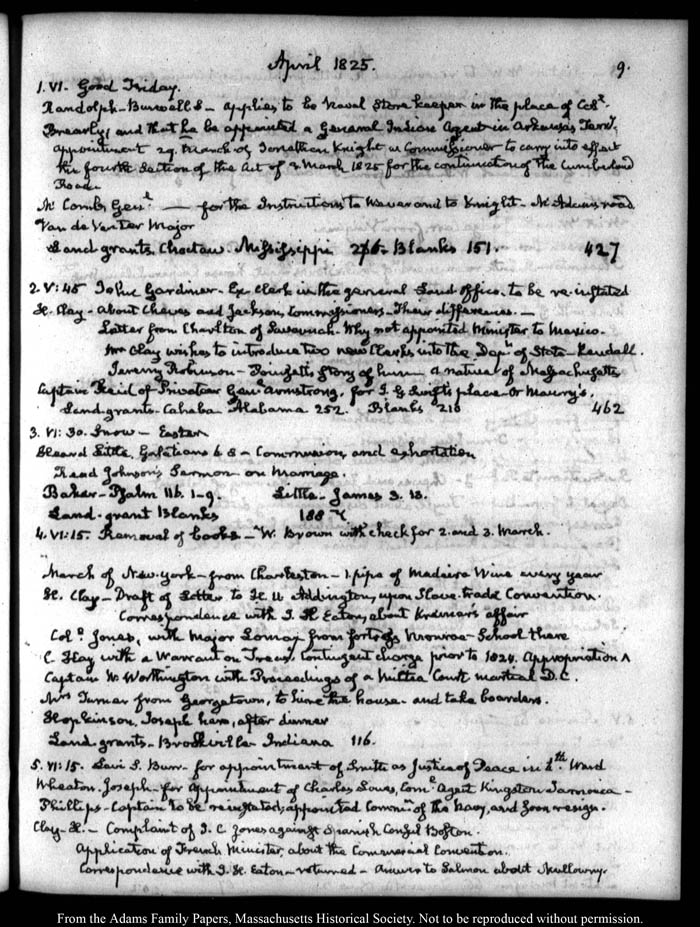 April 1825.
9.
1. VI. Good Friday.
Randolph-Burwell S - applies to be Naval Store keeper in the place of
Brearly, and that he be appointed a General Indian Agent in Arkansas Terry.
Appointment 29. March of Jonathan Knight as Commissioner to carry into effect
the fourth Section of the Act of 3 March 1825 for the continuation of the Cumberland
Road.
Mc Comb, Genl. — for the Instructions to Weaver and to Knight - road
Van de Venter Major
Land grants. Choctaw. Mississippi 276 - Blanks 151. 427
2. V:45 John Gardiner - Ex Clerk in the general Land office. to be re-instated
H. Clay - About Cheves and Jackson, Commissioners - Their differences. —
Letter from Charlton of Savannah. Why not appointed Minister to Mexico.
Mr Clay wishes to introduce two new Clerks into the Dept. of State - Kendall.
Jeremy Robinson - story of him a native of Massachusetts
Captain Reid of Privateer Genl. Armstrong, for J. G. Swift's place or Maury's.
Land grants. Cahaba Alabama 252. Blanks 210 462
3. VI:30. Snow - Easter
Heard Little, Galatians 6. 8 - Communion, and exhortation
Read Johnson's Sermon on Marriage.
Baker - Psalm 116. 1-9. Little - James 3. 13.
Land-grant Blanks 188
4. VI:15. Removal of books - W. Brown with check for 2. and 3. March.
March of New-York - from Charleston - 1. pipe of Madeira Wine every year
H. Clay - Draft of Letter to H. U Addington, upon Slave-trade Convention.
Correspondence with J. H. Eaton, about Kremer's affair
Coln. Jones, with Major Lomax from fortress Monroe - School there
C. Hay with a Warrant on Treasy. Contingent charge prior to 1824. Appropriation
Captain W. Worthington with Proceedings of a Militia Court martial D.C.
Mrs Turner from Georgetown, to hire the house - and take boarders.
Hopkinson, Joseph here, after dinner
Land grants - Brookville Indiana 116.
5. VI:15. Levi S. Burr - for appointment of Smith as Justice of Peace in 4th. Ward
Wheaton. Joseph - for appointment of Charles Coml. Agent Kingston Jamaica -
Phillips - Captain to be reinstated; appointed of the Navy, and soon resign.
Clay - H. - Complaint of J. C. Jones against Spanish Consul Boston.
Application of French Minister, about the Commercial Convention.
Correspondence with J. H. Eaton - returned - Answer to Salmon about Mullowny.
From the Adams Family Papers, Massachusetts Historical Society. Not to be reproduced without permission.